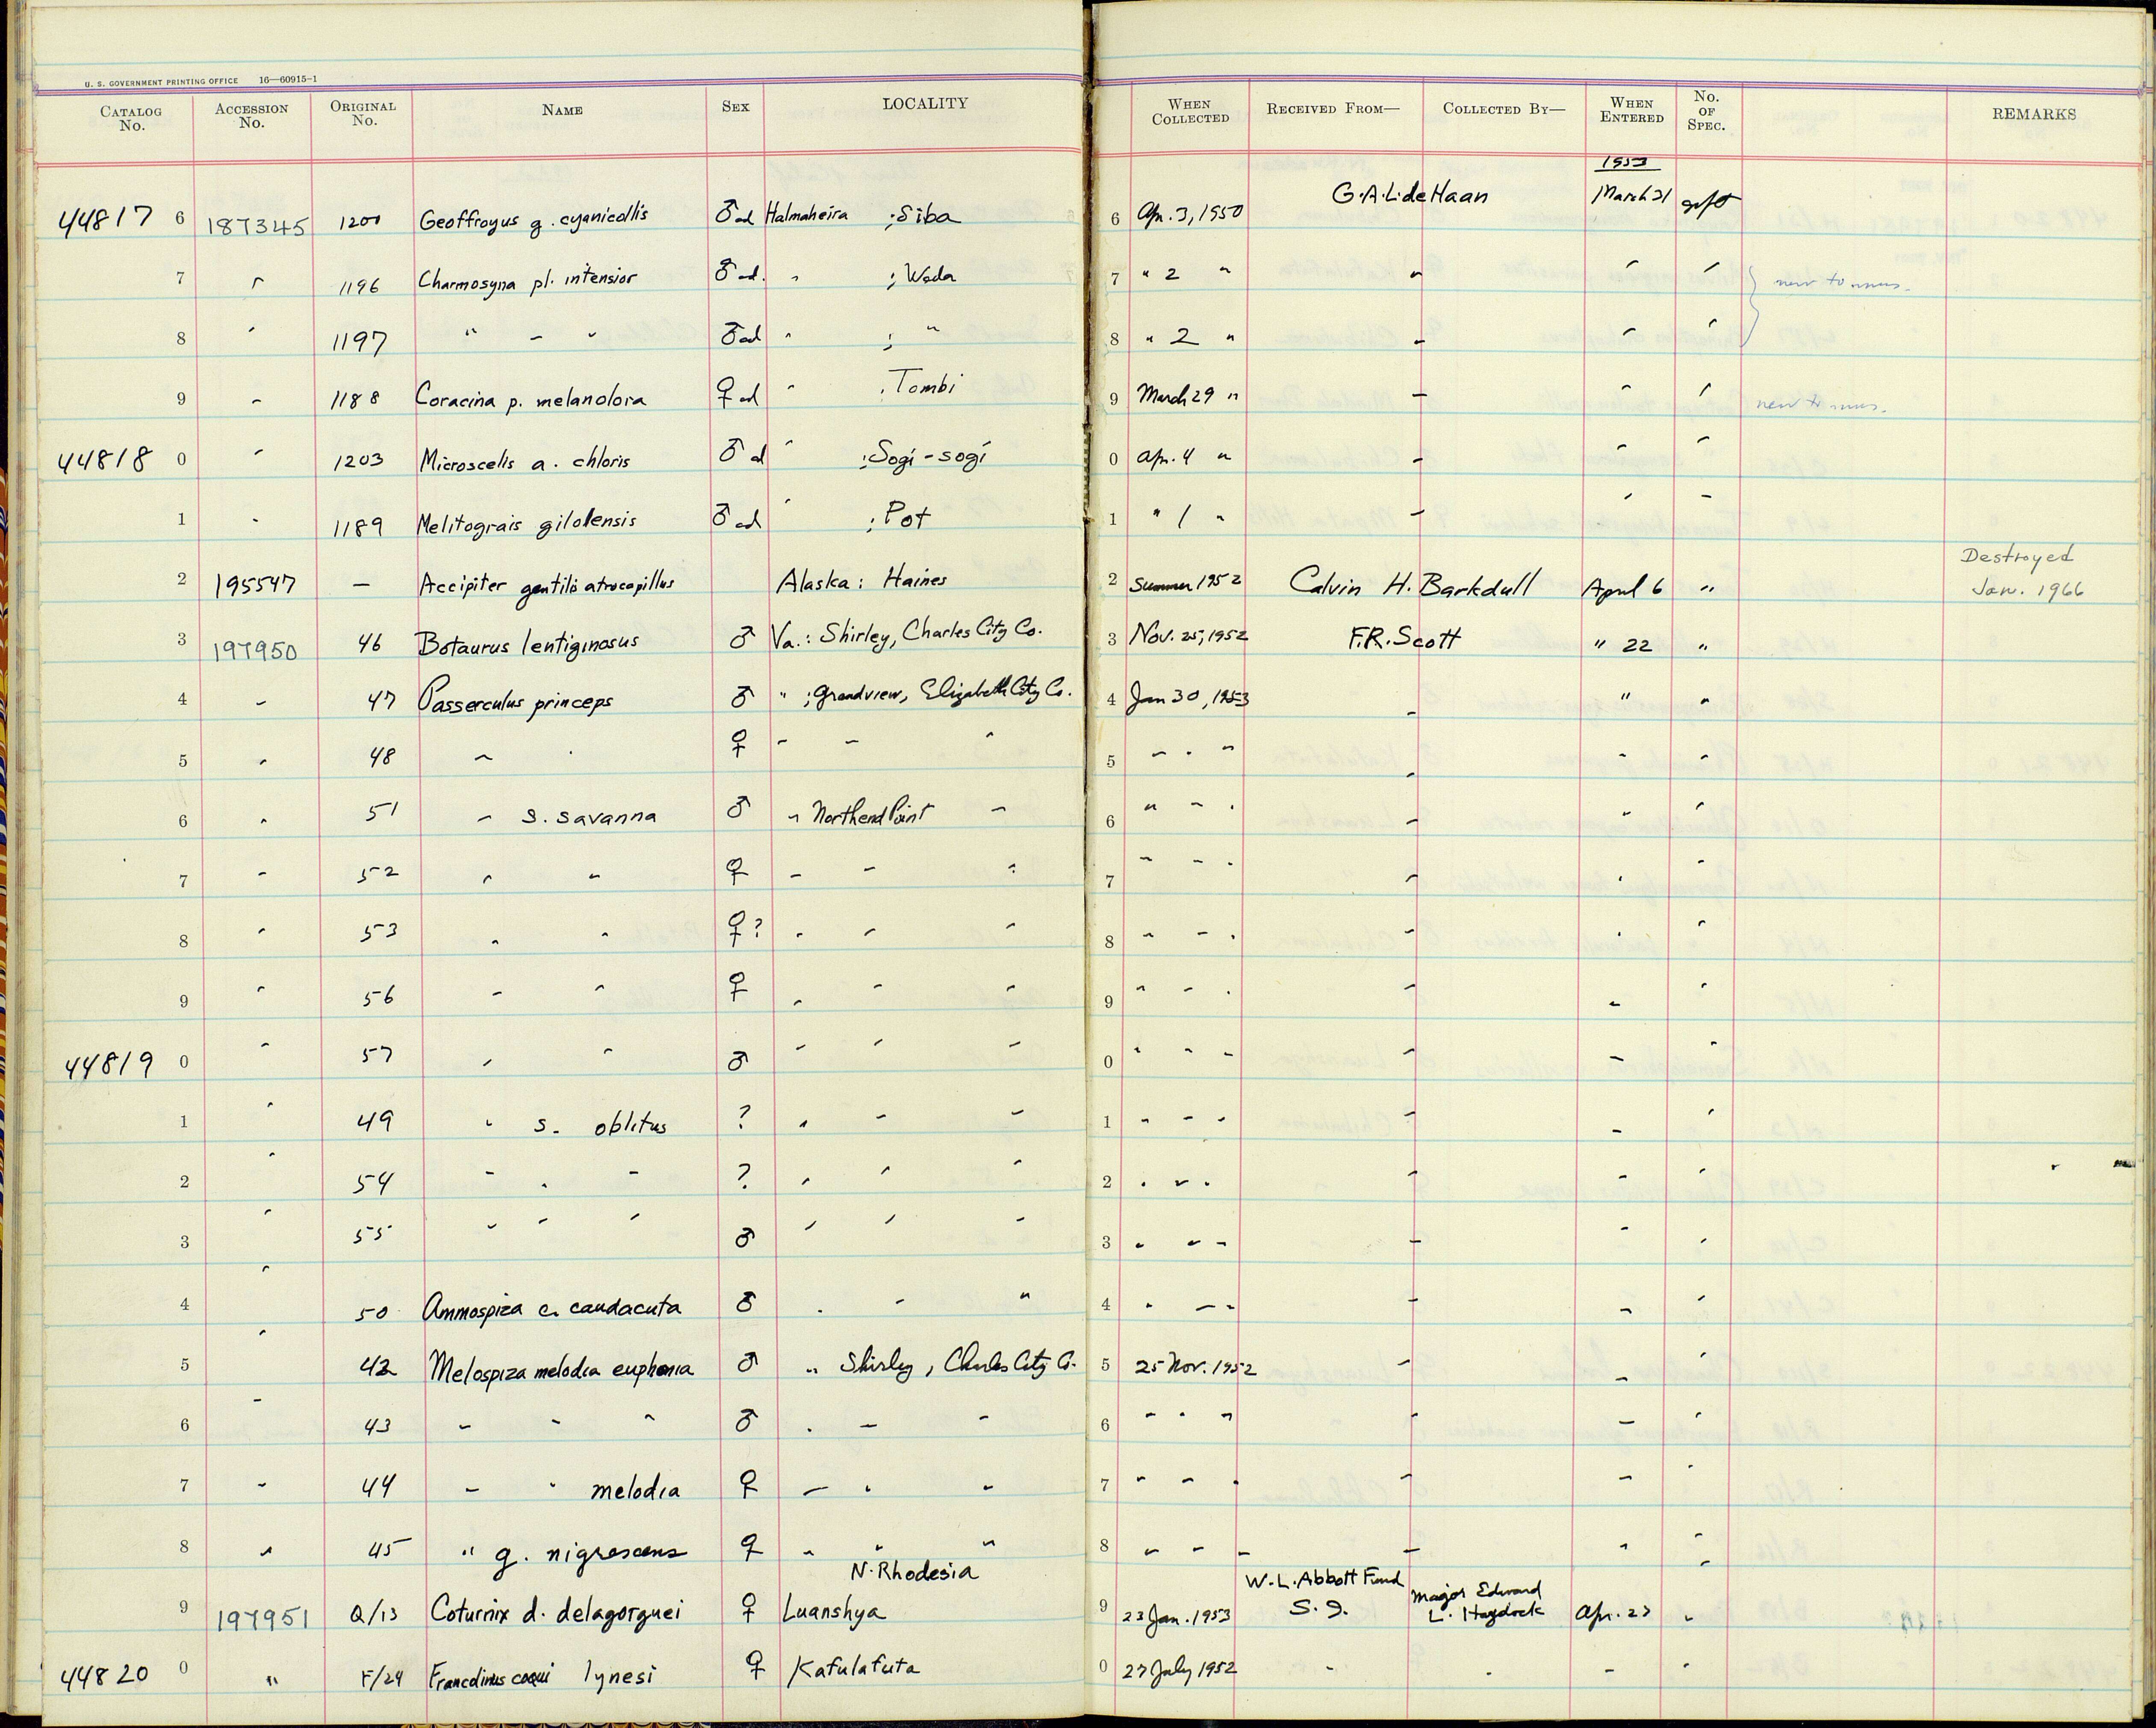 U. S. GOVERNMENT PRINTING OFFICE 16—60915-1
CATALOG No. ACCESSION No. ORIGINAL No. NAME SEX LOCALITY WHEN COLLECTED RECEIVED FROM— COLLECTED BY— WHEN ENTERED No. OF SPEC. REMARKS
1953
44817 6 187345 1200 Geoffroyus g. cyanicollis ♂ad Halmaheira ; Siba 6 Apr. 3, 1950 G.A.L. de Haan March 31 gift
7 " 1196 Charmosyna pl. intensior ♂ad. " ; Weda 7 " 2 " " " " } new to mus.
8 " 1197 " " " ♂ad " ; " 8 " 2 " " " "
9 " 1188 Coracina p. melanolora ♀ad " ; Tombi 9 March 29 " " " " new to mus.
44818 0 " 1203 Microscelis a. chloris ♂d " ; Sogi-sogi 0 Apr. 4 " " " "
1 " 1189 Melitograis gilolensis ♂ad " ; Pot 1 " 1 " " " "
2 195547 — Accipiter gentilis atrocapillus Alaska: Haines 2 Summer 1952 Calvin H. Barkdull April 6 " Destroyed Jan. 1966
3 197950 46 Botaurus lentiginosus ♂ Va.: Shirley, Charles City Co. 3 Nov. 25, 1952 F.R. Scott " 22 "
4 " 47 Passerculus princeps ♂ " ; Grandview, Elizabeth City Co. 4 Jan 30, 1953 " " "
5 " 48 " " ♀ " " " 5 " " " " " "
6 " 51 " s. savanna ♂ " Northend Point " 6 " " " " " "
7 " 52 " " ♀ " " " 7 " " " " " "
8 " 53 " " ♀? " " " 8 " " " " " "
9 " 56 " " ♀ " " " 9 " " " " " "
44819 0 " 57 " " ♂ " " " 0 " " " " " "
1 " 49 " s. oblitus ? " " " 1 " " " " " "
2 " 54 " " " ? " " " 2 " " " " " "
3 " 55 " " " ♂ " " " 3 " " " " " "
4 " 50 Ammospiza c. caudacuta ♂ " " " 4 " " " " " "
5 " 42 Melospiza melodia euphonia ♂ " Shirley, Charles City Co. 5 25 Nov. 1952 " " "
6 " 43 " " " ♂ " " " 6 " " " " " "
7 " 44 " " melodia ♀ " " " 7 " " " " " "
8 " 45 " g. nigrescens ♀ " " " 8 " " " " " "
9 197951 Q/13 Coturnix d. delagorguei ♀ N. Rhodesia Luanshya 9 23 Jan. 1953 W.L. Abbott Fund S.I. Major Edward L. Haydock Apr. 23 "
44820 0 " F/24 Francolinus coqui lynesi ♀ Kafulafuta 0 27 July 1952 " " " "